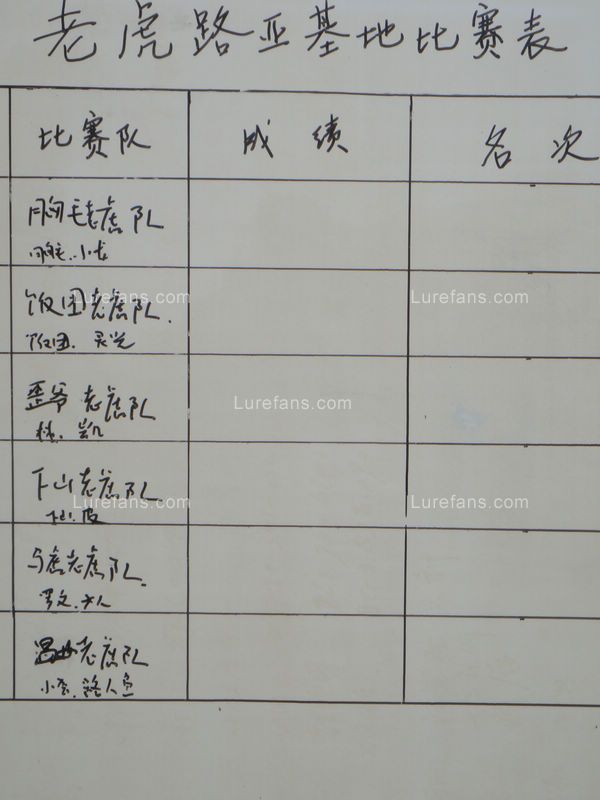 老虎路亚基地比赛表
比赛队 成绩 名次
胸毛老虎队
胸毛.小龙
饭团老虎队.
Lurefans.com Lurefans.com
饭团.灵光
歪爷老虎队
Lurefans.com
林.凯
下山老虎队.
Lurefans.com Lurefans.com
下山.
老虎队.
老虎队
小杰.路人鱼